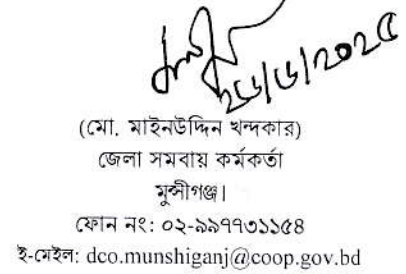 ২৬/৬/২০২৫
(মো. মাইনউদ্দিন খন্দকার)
জেলা সমবায় কর্মকর্তা
মুন্সীগঞ্জ।
ফোন নং: ০২-৯৯৭৭৩১১৫৪
ই-মেইল: dco.munshiganj@coop.gov.bd